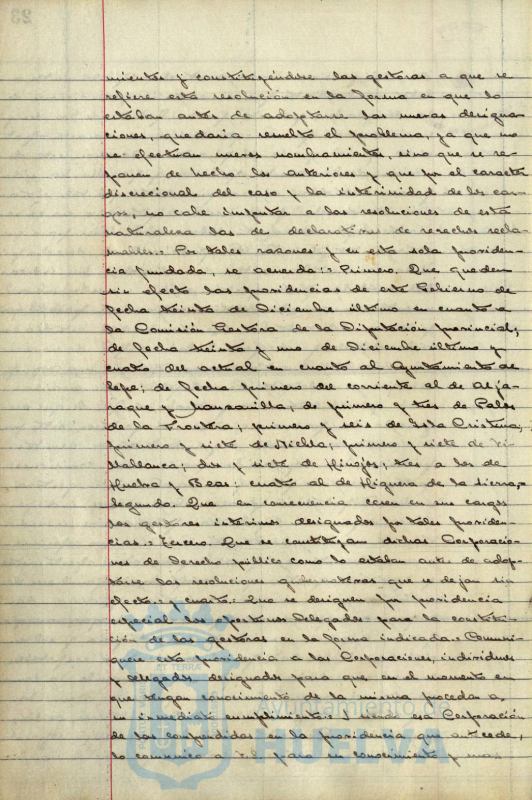 23
mientos y constituyéndose las gestoras a que se
refiere esta resolución en la forma en que lo
estaban antes de adoptarse las nuevas designa-
ciones, quedaria resuelto el problema, ya que no
se efectúan nuevos nombramientos, sino que se re-
ponen de hecho los anteriores y que por el caracter
discrecional del caso y la interinidad de los car-
gos, no cabe imputar a las resoluciones de esta
naturaleza las de declarativas de derechos recla-
mables.= Por tales razones y en esta sola providen-
cia fundada, se acuerda:= Primero. Que queden
sin efecto las providencias de este Gobierno de
fecha treinta de Diciembre último en cuanto a
la Comisión Gestora de la Diputación provincial;
de fecha treinta y uno de Diciembre último y
cuatro del actual en cuanto al Ayuntamiento de
Lepe; de fecha primero del corriente al de Alja-
raque y Manzanilla; de primero y tres de Palos
de la Frontera; primero y seis de Isla Cristina;
primero y siete de Niebla; primero y siete de Vi-
llablanca; dos y siete de Hinojos; tres a los de
Huelva y Beas; cuatro al de Higuera de la Sierra,
Segundo. Que en consecuencia cesen en sus cargos
los gestores interinos designados por tales providen-
cias.= Tercero. Que se constituyan dichas Corporacio-
nes de Derecho público como lo estaban antes de adop-
tarse las resoluciones gubernativas que se dejan sin
efecto.= y cuarto.= Que se designen por providencia
especial los oportunos Delegados para la constitu-
ción de las gestoras en la forma indicada.= Comuni-
quese esta providencia a las Corporaciones, individuos
y delegados designados para que en el momento en
que tengan conocimiento de la misma procedan a
su inmediato cumplimiento.= Y siendo esa Corporación
de las comprendidas en la providencia que antecede,
lo comunico a V.S. para su conocimiento y mas
Ayuntamiento de
HUELVA